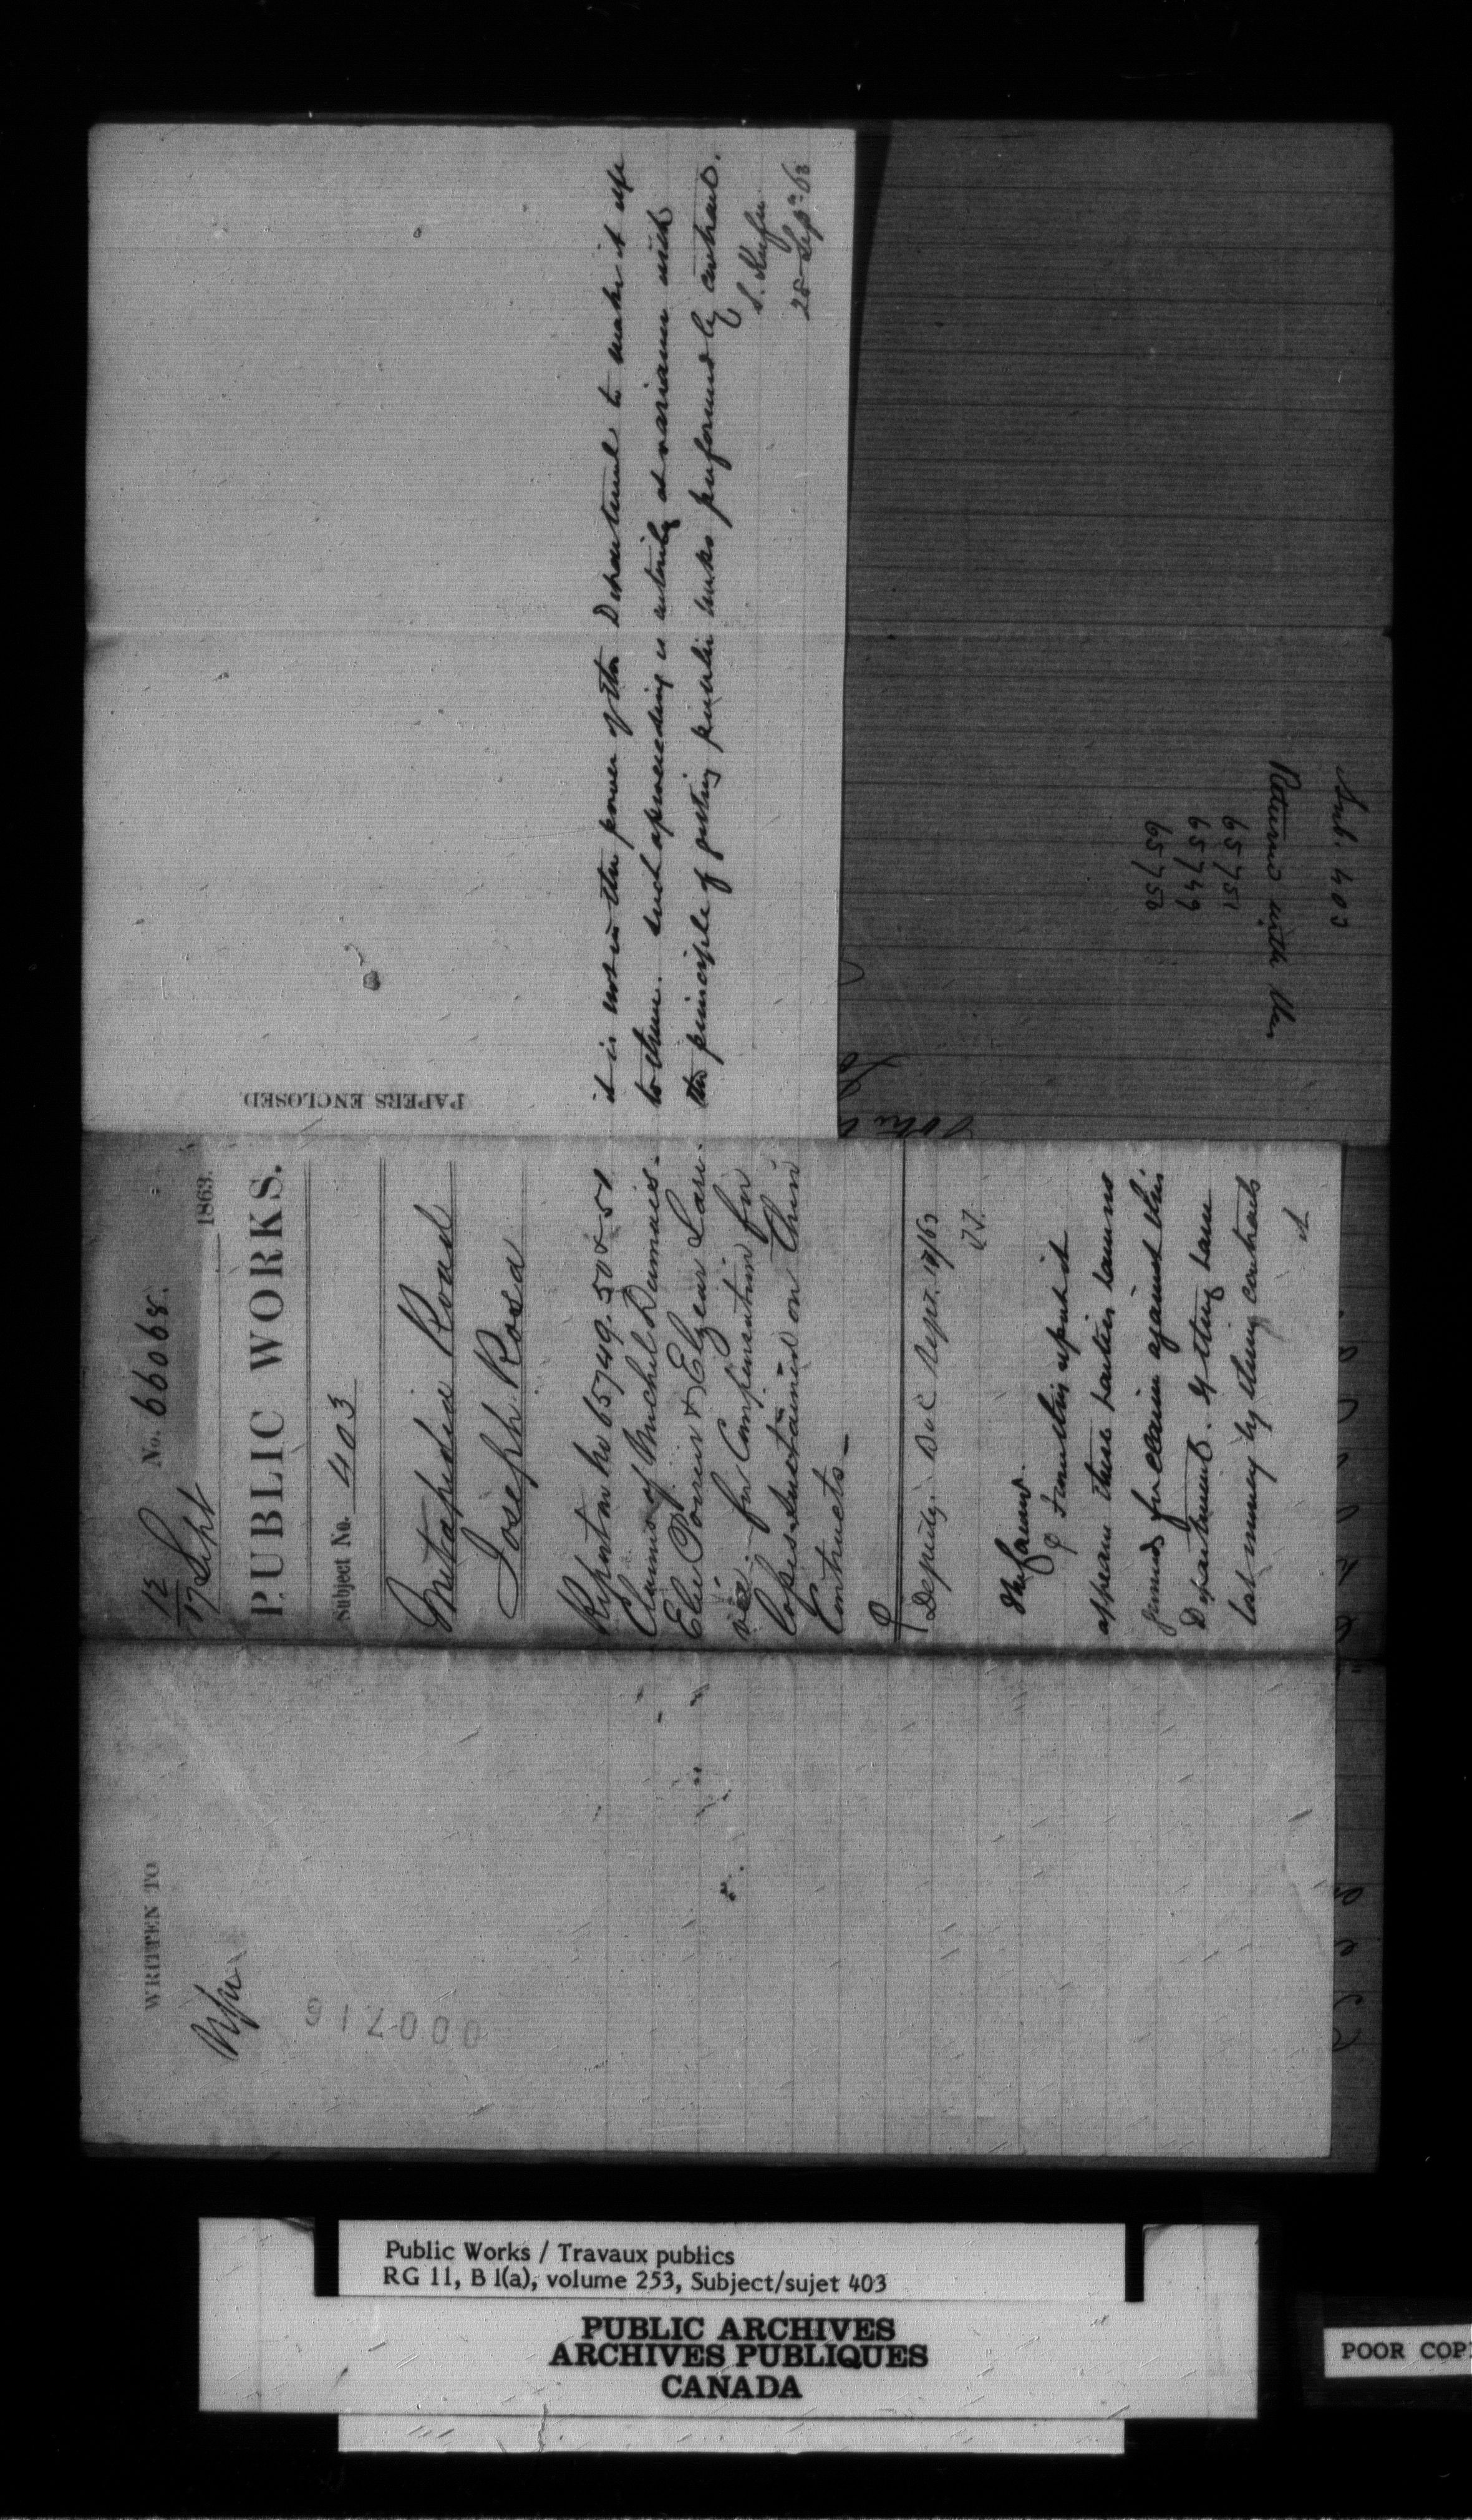 12
17 Sept 1863.
No. 66068.
PUBLIC WORKS.
Subject No. 403
Metapedia Road
Joseph Rosa
Report on No 65749. 50 & 51
Claims of Michel Dumais-
Elie Poirier & Elzear Lari-
vée. for Compensation for
loss sustained on their
Contracts_
Deputy. D & C Sept. 19/63
J.T.
Mr.
From this report it
appears these parties have no
grounds for claim against this
Department. If they have
lost money by their contracts
it is not in the power of the Department to make it up
to them. such a proceeding is entirely at variance with
the principle of getting public works performed by contract.
S. Keefer
28 Sep 63
PAPERS ENCLOSED.
WRITTEN TO
000716
Sub. 403
Returned with
65751
65749
65750
Public Works / Travaux publics
RG 11, B 1(a), volume 253, Subject/sujet 403
PUBLIC ARCHIVES
ARCHIVES PUBLIQUES
CANADA
POOR COP